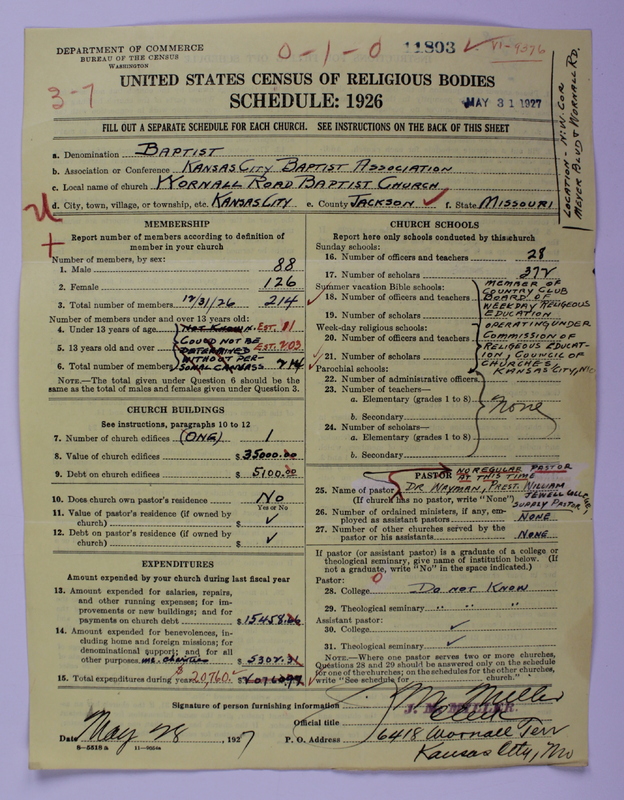 DEPARTMENT OF COMMERCE
BUREAU OF THE CENSUS
WASHINGTON
0-1-0
11893
VI-9376
3-7
UNITED STATES CENSUS OF RELIGIOUS BODIES
SCHEDULE: 1926
MAY 31 1927
FILL OUT A SEPARATE SCHEDULE FOR EACH CHURCH. SEE INSTRUCTIONS ON THE BACK OF THIS SHEET
LOCATION - N.W. COR
MEYER BLVD & WORNALL RD.
a. Denomination BAPTIST
b. Association or Conference KANSAS CITY BAPTIST ASSOCIATION
c. Local name of church WORNALL ROAD BAPTIST CHURCH
d. City, town, village, or township, etc. KANSAS CITY e. County JACKSON f. State MISSOURI
MEMBERSHIP
Report number of members according to definition of
member in your church
Number of members, by sex:
1. Male 88
2. Female 126
3. Total number of members 12/31/26 214
Number of members under and over 13 years old:
4. Under 13 years of age NOT KNOWN. EST. 11
5. 13 years old and over COULD NOT BE DETERMINED EST. 203
6. Total number of members WITHOUT PERSONAL CANVASS 214
NOTE.—The total given under Question 6 should be the
same as the total of males and females given under Question 3.
CHURCH BUILDINGS
See instructions, paragraphs 10 to 12
7. Number of church edifices (ONE) 1
8. Value of church edifices $ 35000.00
9. Debt on church edifices $ 5100.00
10. Does church own pastor's residence No
Yes or No
11. Value of pastor's residence (if owned by
church) $ ✓
12. Debt on pastor's residence (if owned by
church) $ ✓
EXPENDITURES
Amount expended by your church during last fiscal year
13. Amount expended for salaries, repairs,
and other running expenses; for im-
provements or new buildings; and for
payments on church debt $ 15458.
14. Amount expended for benevolences, in-
cluding home and foreign missions; for
denominational support; and for all
other purposes $ 5302.31
15. Total expenditures during year $20,760.
CHURCH SCHOOLS
Report here only schools conducted by this church
Sunday schools:
16. Number of officers and teachers 28
17. Number of scholars 372
Summer vacation Bible schools:
18. Number of officers and teachers
19. Number of scholars
MEMBER OF
COUNTRY CLUB
BOARD OF
WEEKDAY RELIGEOUS
EDUCATION
Week-day religious schools:
20. Number of officers and teachers
21. Number of scholars
OPERATING UNDER
COMMISSION OF
RELIGEOUS EDUCAT-
ION, COUNCIL OF
CHURCHES
KANSAS CITY, MO
Parochial schools:
22. Number of administrative officers
23. Number of teachers—
a. Elementary (grades 1 to 8)
b. Secondary
24. Number of scholars—
a. Elementary (grades 1 to 8)
b. Secondary
None
PASTOR NO REGULAR PASTOR
AT THIS TIME
25. Name of pastor DR NAYMAN, PREST. WILLIAM
JEWELL COLLEGE,
SUPPLY PASTOR
(If church has no pastor, write "None")
26. Number of ordained ministers, if any, em-
ployed as assistant pastors NONE
27. Number of other churches served by the
pastor or his assistants NONE
If pastor (or assistant pastor) is a graduate of a college or
theological seminary, give name of institution below. (If
not a graduate, write "No" in the space indicated.)
Pastor:
28. College DO NOT KNOW
29. Theological seminary " " "
Assistant pastor:
30. College ✓
31. Theological seminary ✓
NOTE.—Where one pastor serves two or more churches,
Questions 28 and 29 should be answered only on the schedule
for one of the churches; on the schedules for the other churches,
write "See schedule for church."
Signature of person furnishing information J. M. Miller
J. M. MILLER
Official title Clerk
Date May 28, 1927 P. O. Address 6418 Wornall Terr
Kansas City, Mo
8-5518a 11-9024a